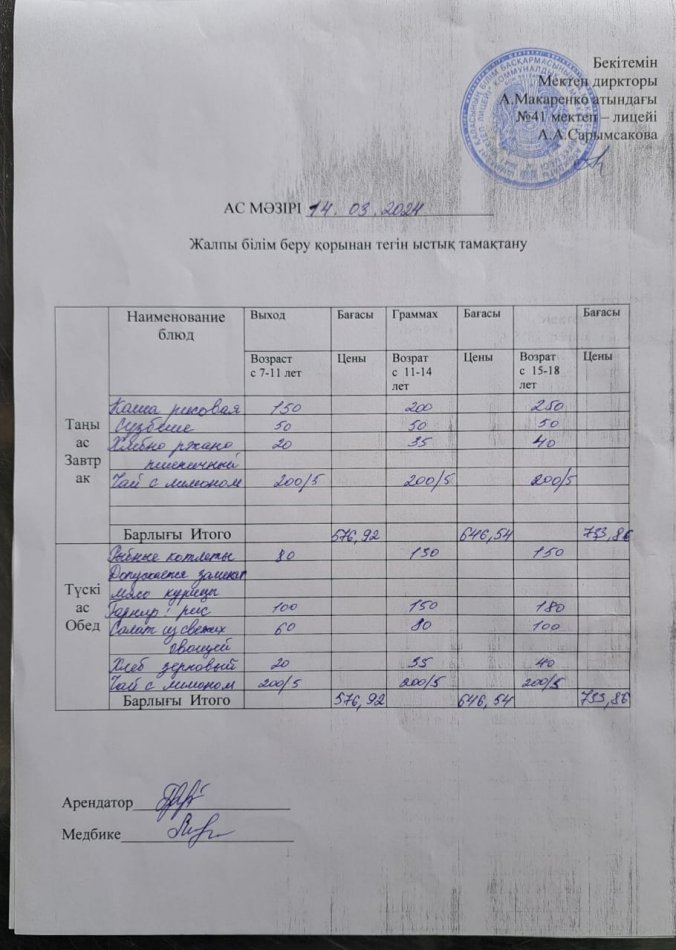 Бекітемін
Мектеп диркторы
А.Макаренко атындағы
№41 мектеп – лицейі
А.А.Сарымсакова
АС МӘЗІРІ 14. 03. 2024
Жалпы білім беру қорынан тегін ыстық тамақтану
Наименование блюд Выход Бағасы Граммах Бағасы Бағасы
Возраст с 7-11 лет Цены Возрат с 11-14 лет Цены Возрат с 15-18 лет Цены
Таңы ас Завтр ак
Каша рисовая 150 200 250
Сүзбеше 50 50 50
Хлебно ржано 20 35 40
пшеничный
Чай с лимоном 200/5 200/5 200/5
Барлығы Итого 576,92 646,54 733,86
Түскі ас Обед
Рыбные котлеты 80 130 150
Допускается замена
мясо курицы
Гарнир: рис 100 150 180
Салат из свежих 60 80 100
овощей
Хлеб зерновый 20 35 40
Чай с лимоном 200/5 200/5 200/5
Барлығы Итого 576,92 646,54 733,86
Арендатор
Медбике